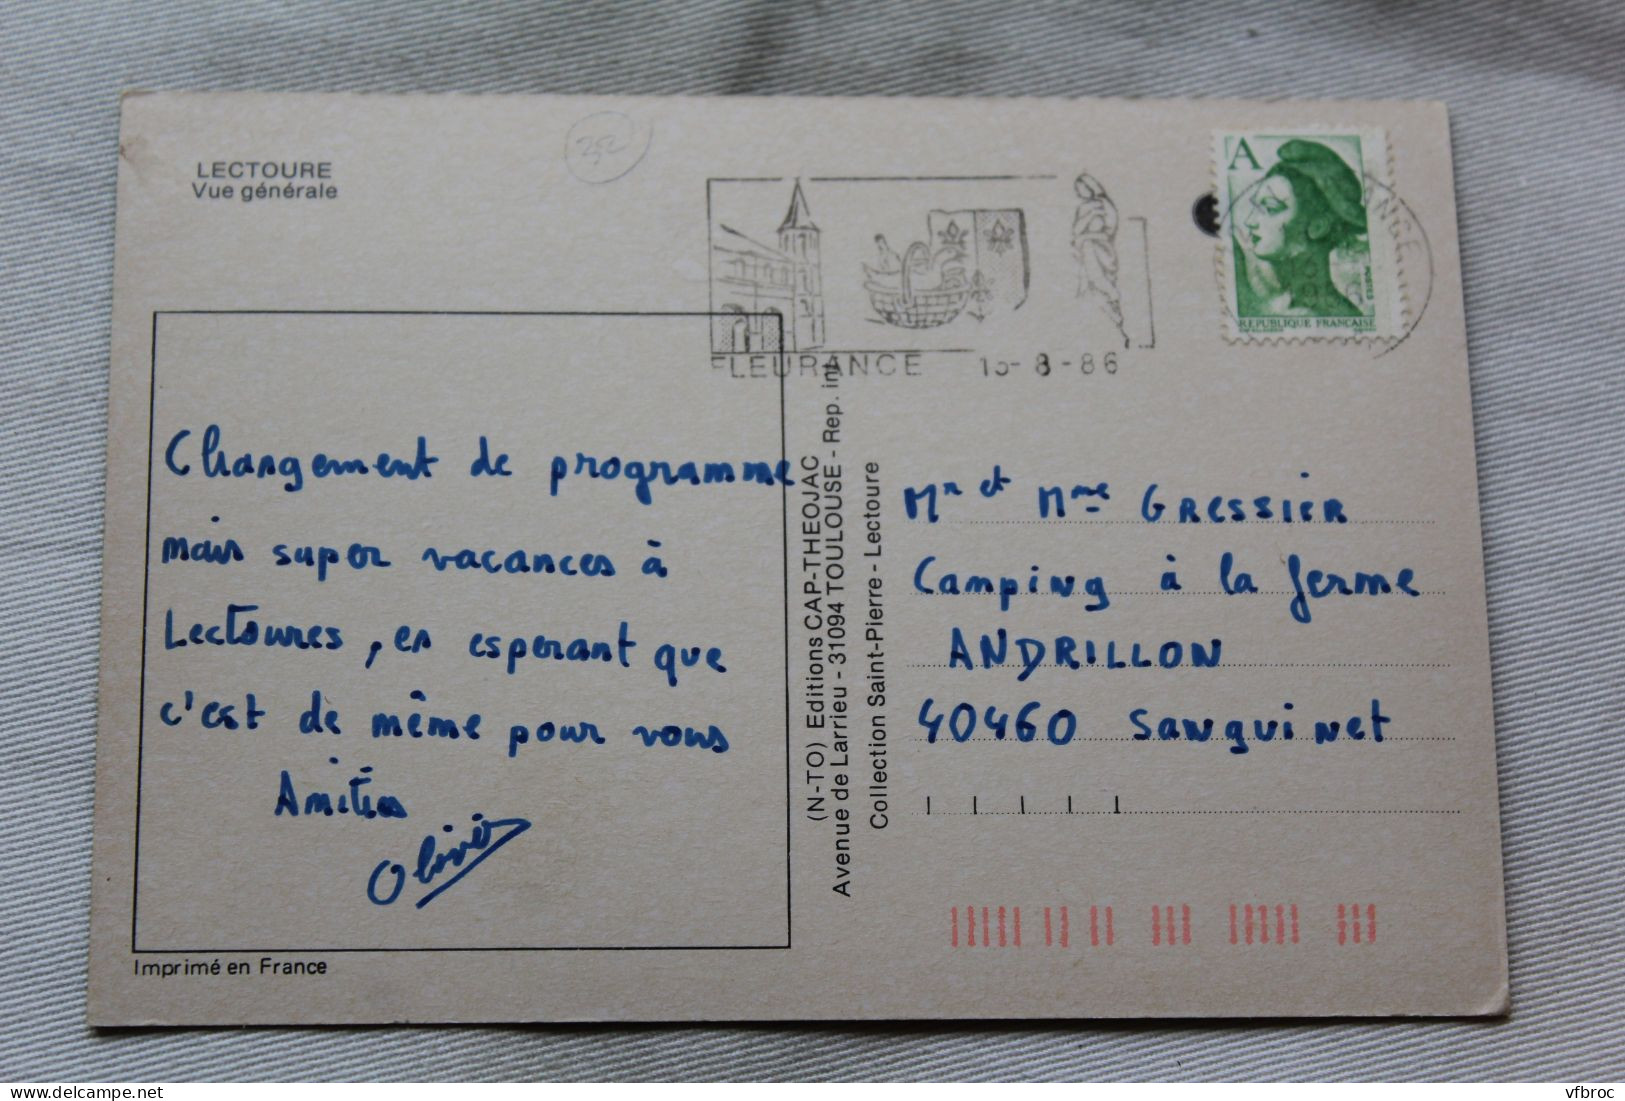 LECTOURE
Vue générale
FLEURANCE 15-8-86
A
POSTES
REPUBLIQUE FRANÇAISE
Changement de programme
mais super vacances à
Lectoures, en esperant que
c'est de même pour vous
Amitiés
Olivier
(N-TO) Editions CAP-THEOJAC
Avenue de Larrieu - 31094 TOULOUSE - Rep. int
Collection Saint-Pierre - Lectoure
Mr et Mme GRESSIER
Camping à la ferme
ANDRILLON
40460 Sanguinet
Imprimé en France
www.delcampe.net
vfbroc